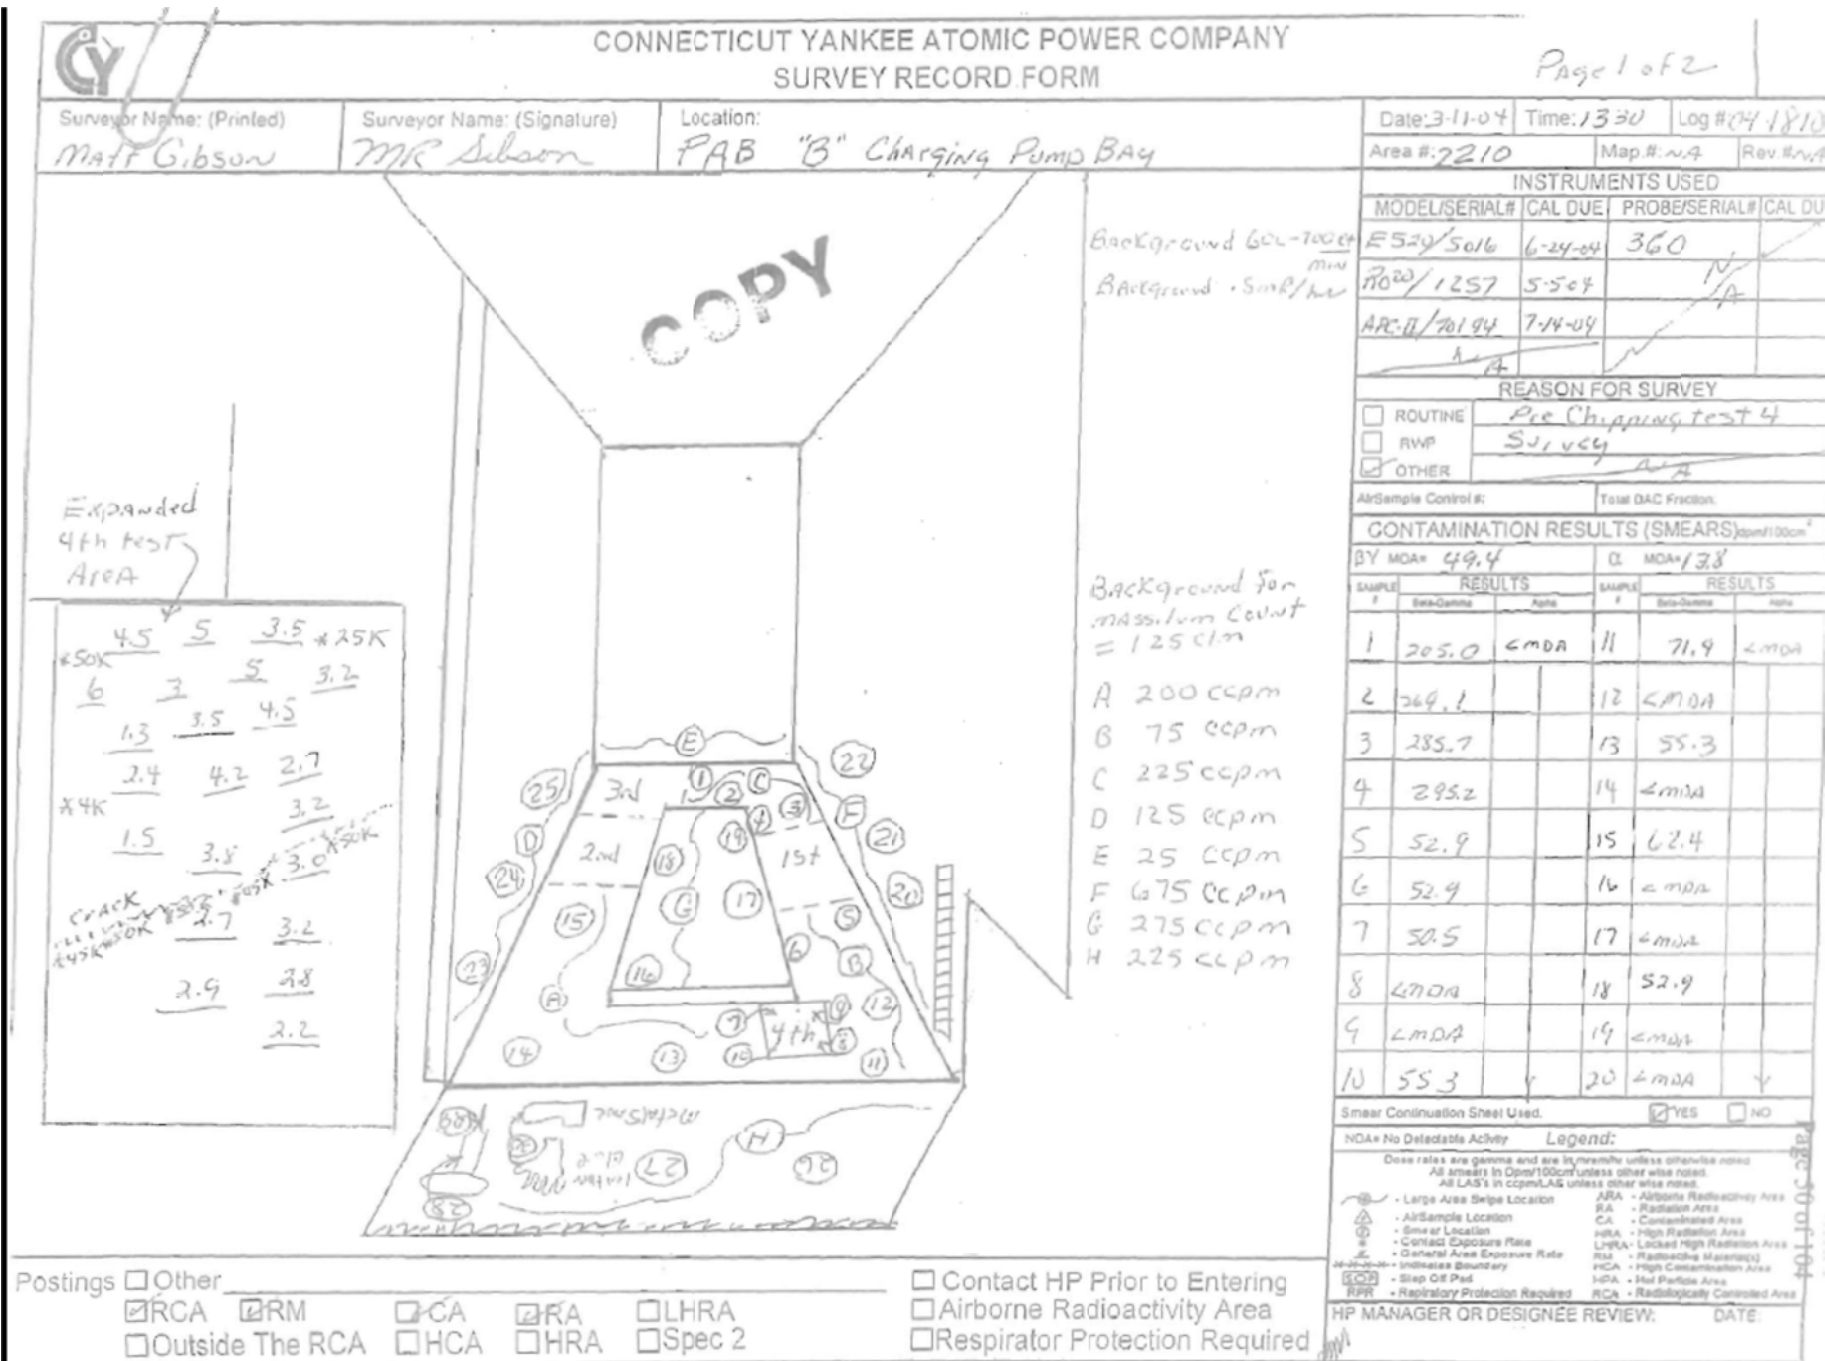 CY
CONNECTICUT YANKEE ATOMIC POWER COMPANY
SURVEY RECORD FORM
Page 1 of 2
Surveyor Name: (Printed)
Matt Gibson
Surveyor Name: (Signature)
MR Gibson
Location:
PAB "B" Charging Pump Bay
Date: 3-11-04 Time: 1330 Log # 04-1810
Area #: 2210 Map.#: NA Rev.#: NA
INSTRUMENTS USED
MODEL/SERIAL# CAL DUE PROBE/SERIAL# CAL DU
E520/5016 6-24-04 360
RO20/1257 5-5-04
APC-II/70194 7-14-04
NA
NA
REASON FOR SURVEY
ROUTINE Pre Chipping test 4
RWP Survey
OTHER NA
AirSample Control #: Total DAC Fraction:
CONTAMINATION RESULTS (SMEARS) dpm/100cm²
BY MDA= 49.4 α MDA= 13.8
SAMPLE # RESULTS SAMPLE # RESULTS
Beta-Gamma Alpha Beta-Gamma Alpha
1 205.0 <MDA 11 71.9 <MDA
2 269.1 12 <MDA
3 285.7 13 55.3
4 295.2 14 <MDA
5 52.9 15 62.4
6 52.9 16 <MDA
7 50.5 17 <MDA
8 <MDA 18 52.9
9 <MDA 19 <MDA
10 55.3 20 <MDA
Smear Continuation Sheet Used. YES NO
NDA= No Detectable Activity Legend:
Dose rates are gamma and are in mrem/hr unless otherwise noted
All smears in Dpm/100cm² unless other wise noted.
All LAS's in ccpm/LAS unless other wise noted.
- Large Area Swipe Location
- AirSample Location
- Smear Location
- Contact Exposure Rate
- General Area Exposure Rate
- Indicates Boundary
SOP - Step Off Pad
RPR - Respiratory Protection Required
ARA - Airborne Radioactivity Area
RA - Radiation Area
CA - Contaminated Area
HRA - High Radiation Area
LHRA - Locked High Radiation Area
RM - Radioactive Material(s)
HCA - High Contamination Area
HPA - Hot Particle Area
RCA - Radiologically Controlled Area
HP MANAGER OR DESIGNEE REVIEW: DATE:
Page 50 of 104
COPY
Background 600-700 ct/min
Background .5mR/hr
Background for
Massilum Count
= 125 c/m
A 200 ccpm
B 75 ccpm
C 225 ccpm
D 125 ccpm
E 25 ccpm
F 675 ccpm
G 275 ccpm
H 225 ccpm
Expanded
4th test
Area
4.5 5 3.5 *25K
*50K
6 3 5 3.2
1.3 3.5 4.5
2.4 4.2 2.7
*4K 3.2
1.5 3.8 3.0 *50K
CRACK
*45K *50K 2.7 3.2
2.9 2.8
2.2
E
25 3rd 1 2 C 22
D 4 3 F
2nd 18 19 1st 21
24 G 17 20
15 5
23 16 6 B
A 7 4th 9 12
14 13 10 8 11
Metal Saec
H
27 26
28
Postings Other
RCA RM CA RA LHRA
Outside The RCA HCA HRA Spec 2
Contact HP Prior to Entering
Airborne Radioactivity Area
Respirator Protection Required